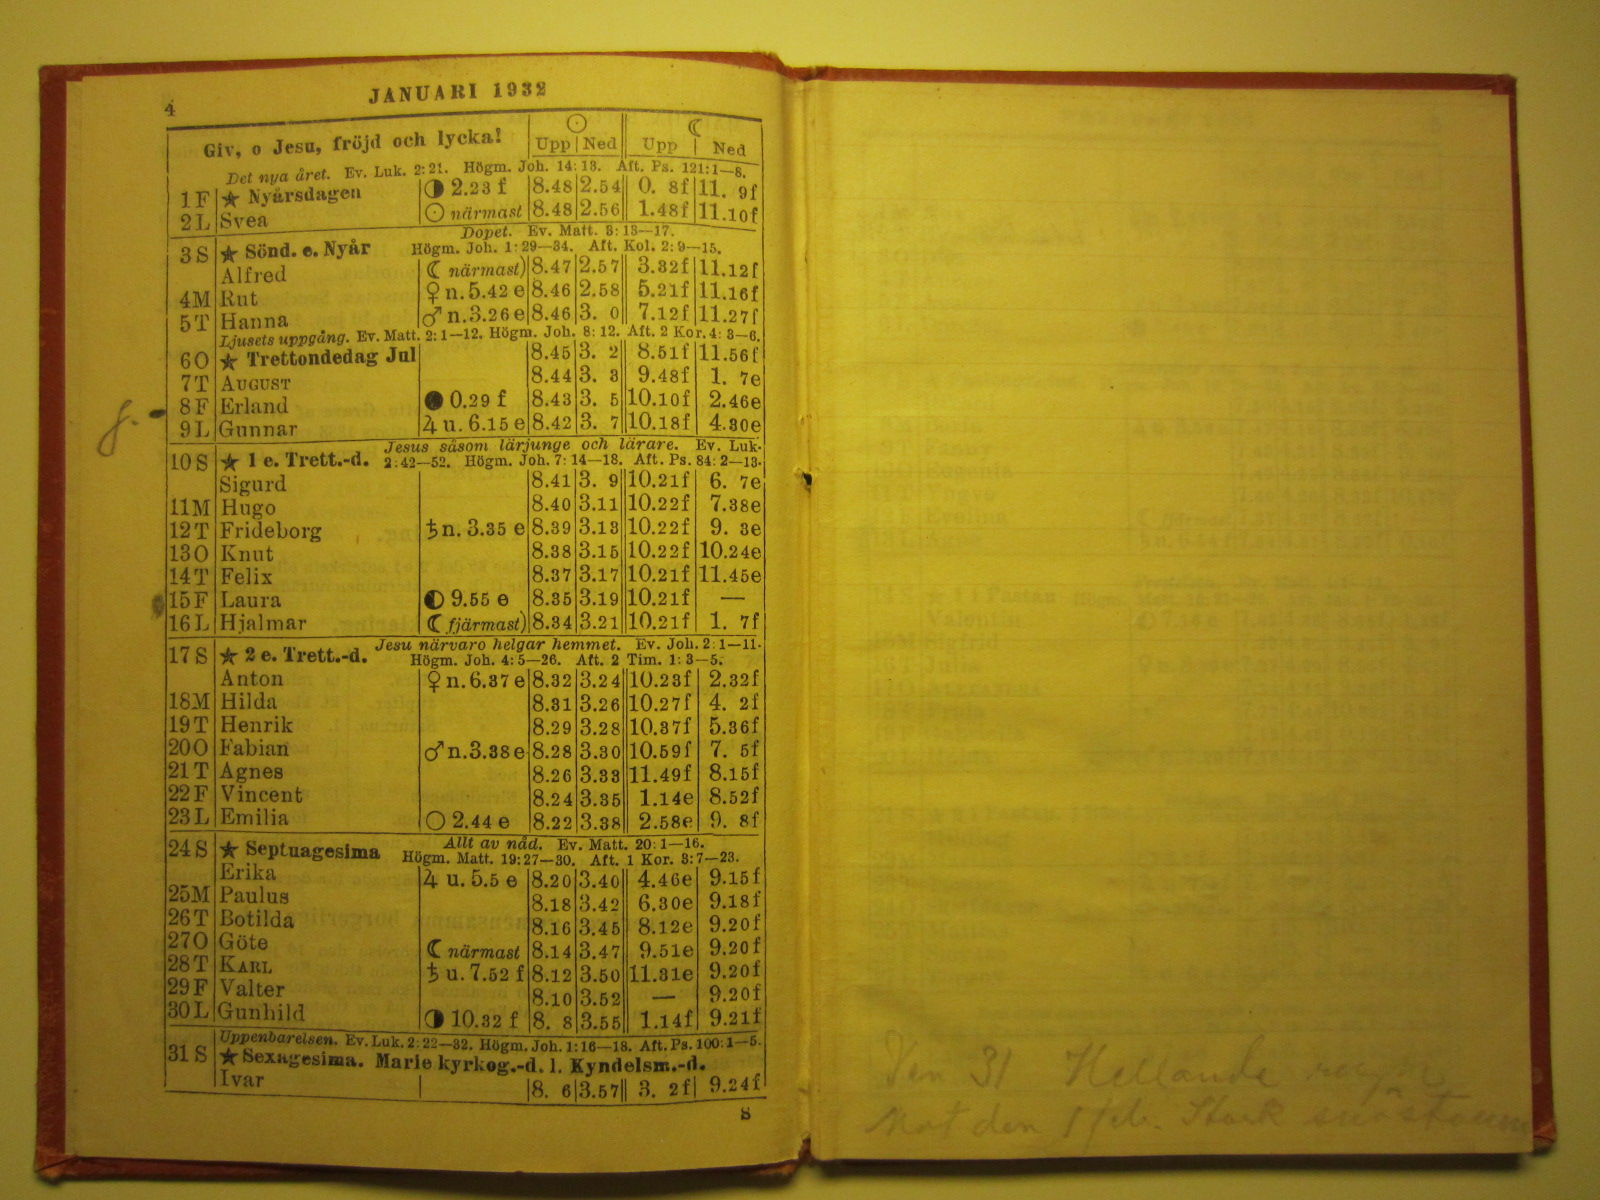 4
JANUARI 1932
Giv, o Jesu, fröjd och lycka! ☉ ☾
Upp Ned Upp Ned
Det nya året. Ev. Luk. 2:21. Högm. Joh. 14:13. Aft. Ps. 121:1—8.
1 F ★ Nyårsdagen ◑ 2.23 f 8.48 2.54 0. 8f 11. 9f
2 L Svea ☉ närmast 8.48 2.56 1.48f 11.10f
Dopet. Ev. Matt. 3:13—17.
3 S ★ Sönd. e. Nyår Högm. Joh. 1:29—34. Aft. Kol. 2:9—15.
Alfred ☾ närmast) 8.47 2.57 3.32f 11.12f
4 M Rut ♀ n. 5.42 e 8.46 2.58 5.21f 11.16f
5 T Hanna ♂ n. 3.26 e 8.46 3. 0 7.12f 11.27f
Ljusets uppgång. Ev. Matt. 2:1—12. Högm. Joh. 8:12. Aft. 2 Kor. 4:3—6.
6 O ★ Trettondedag Jul 8.45 3. 2 8.51f 11.56f
7 T AUGUST 8.44 3. 3 9.48f 1. 7e
8 F Erland ● 0.29 f 8.43 3. 5 10.10f 2.46e
9 L Gunnar ♃ u. 6.15 e 8.42 3. 7 10.18f 4.30e
Jesus såsom lärjunge och lärare. Ev. Luk.
10 S ★ 1 e. Trett.-d. 2:42—52. Högm. Joh. 7:14—18. Aft. Ps. 84:2—13.
Sigurd 8.41 3. 9 10.21f 6. 7e
11 M Hugo 8.40 3.11 10.22f 7.38e
12 T Frideborg ♄ n. 3.35 e 8.39 3.13 10.22f 9. 3e
13 O Knut 8.38 3.15 10.22f 10.24e
14 T Felix 8.37 3.17 10.21f 11.45e
15 F Laura ◐ 9.55 e 8.35 3.19 10.21f —
16 L Hjalmar ☾ fjärmast) 8.34 3.21 10.21f 1. 7f
Jesu närvaro helgar hemmet. Ev. Joh. 2:1—11.
17 S ★ 2 e. Trett.-d. Högm. Joh. 4:5—26. Aft. 2 Tim. 1:3—5.
Anton ♀ n. 6.37 e 8.32 3.24 10.23f 2.32f
18 M Hilda 8.31 3.26 10.27f 4. 2f
19 T Henrik 8.29 3.28 10.37f 5.36f
20 O Fabian ♂ n. 3.38 e 8.28 3.30 10.59f 7. 5f
21 T Agnes 8.26 3.33 11.49f 8.15f
22 F Vincent 8.24 3.35 1.14e 8.52f
23 L Emilia ○ 2.44 e 8.22 3.38 2.58e 9. 8f
Allt av nåd. Ev. Matt. 20:1—16.
24 S ★ Septuagesima Högm. Matt. 19:27—30. Aft. 1 Kor. 3:7—23.
Erika ♃ u. 5.5 e 8.20 3.40 4.46e 9.15f
25 M Paulus 8.18 3.42 6.30e 9.18f
26 T Botilda 8.16 3.45 8.12e 9.20f
27 O Göte ☾ närmast 8.14 3.47 9.51e 9.20f
28 T KARL ♄ u. 7.52 f 8.12 3.50 11.31e 9.20f
29 F Valter 8.10 3.52 — 9.20f
30 L Gunhild ◑ 10.32 f 8. 8 3.55 1.14f 9.21f
Uppenbarelsen. Ev. Luk. 2:22—32. Högm. Joh. 1:16—18. Aft. Ps. 100:1—5.
31 S ★ Sexagesima. Marie kyrkog.-d. l. Kyndelsm.-d.
Ivar 8. 6 3.57 3. 2f 9.24f
S
Den 31
Mot den 1 feb. Stark snöstorm